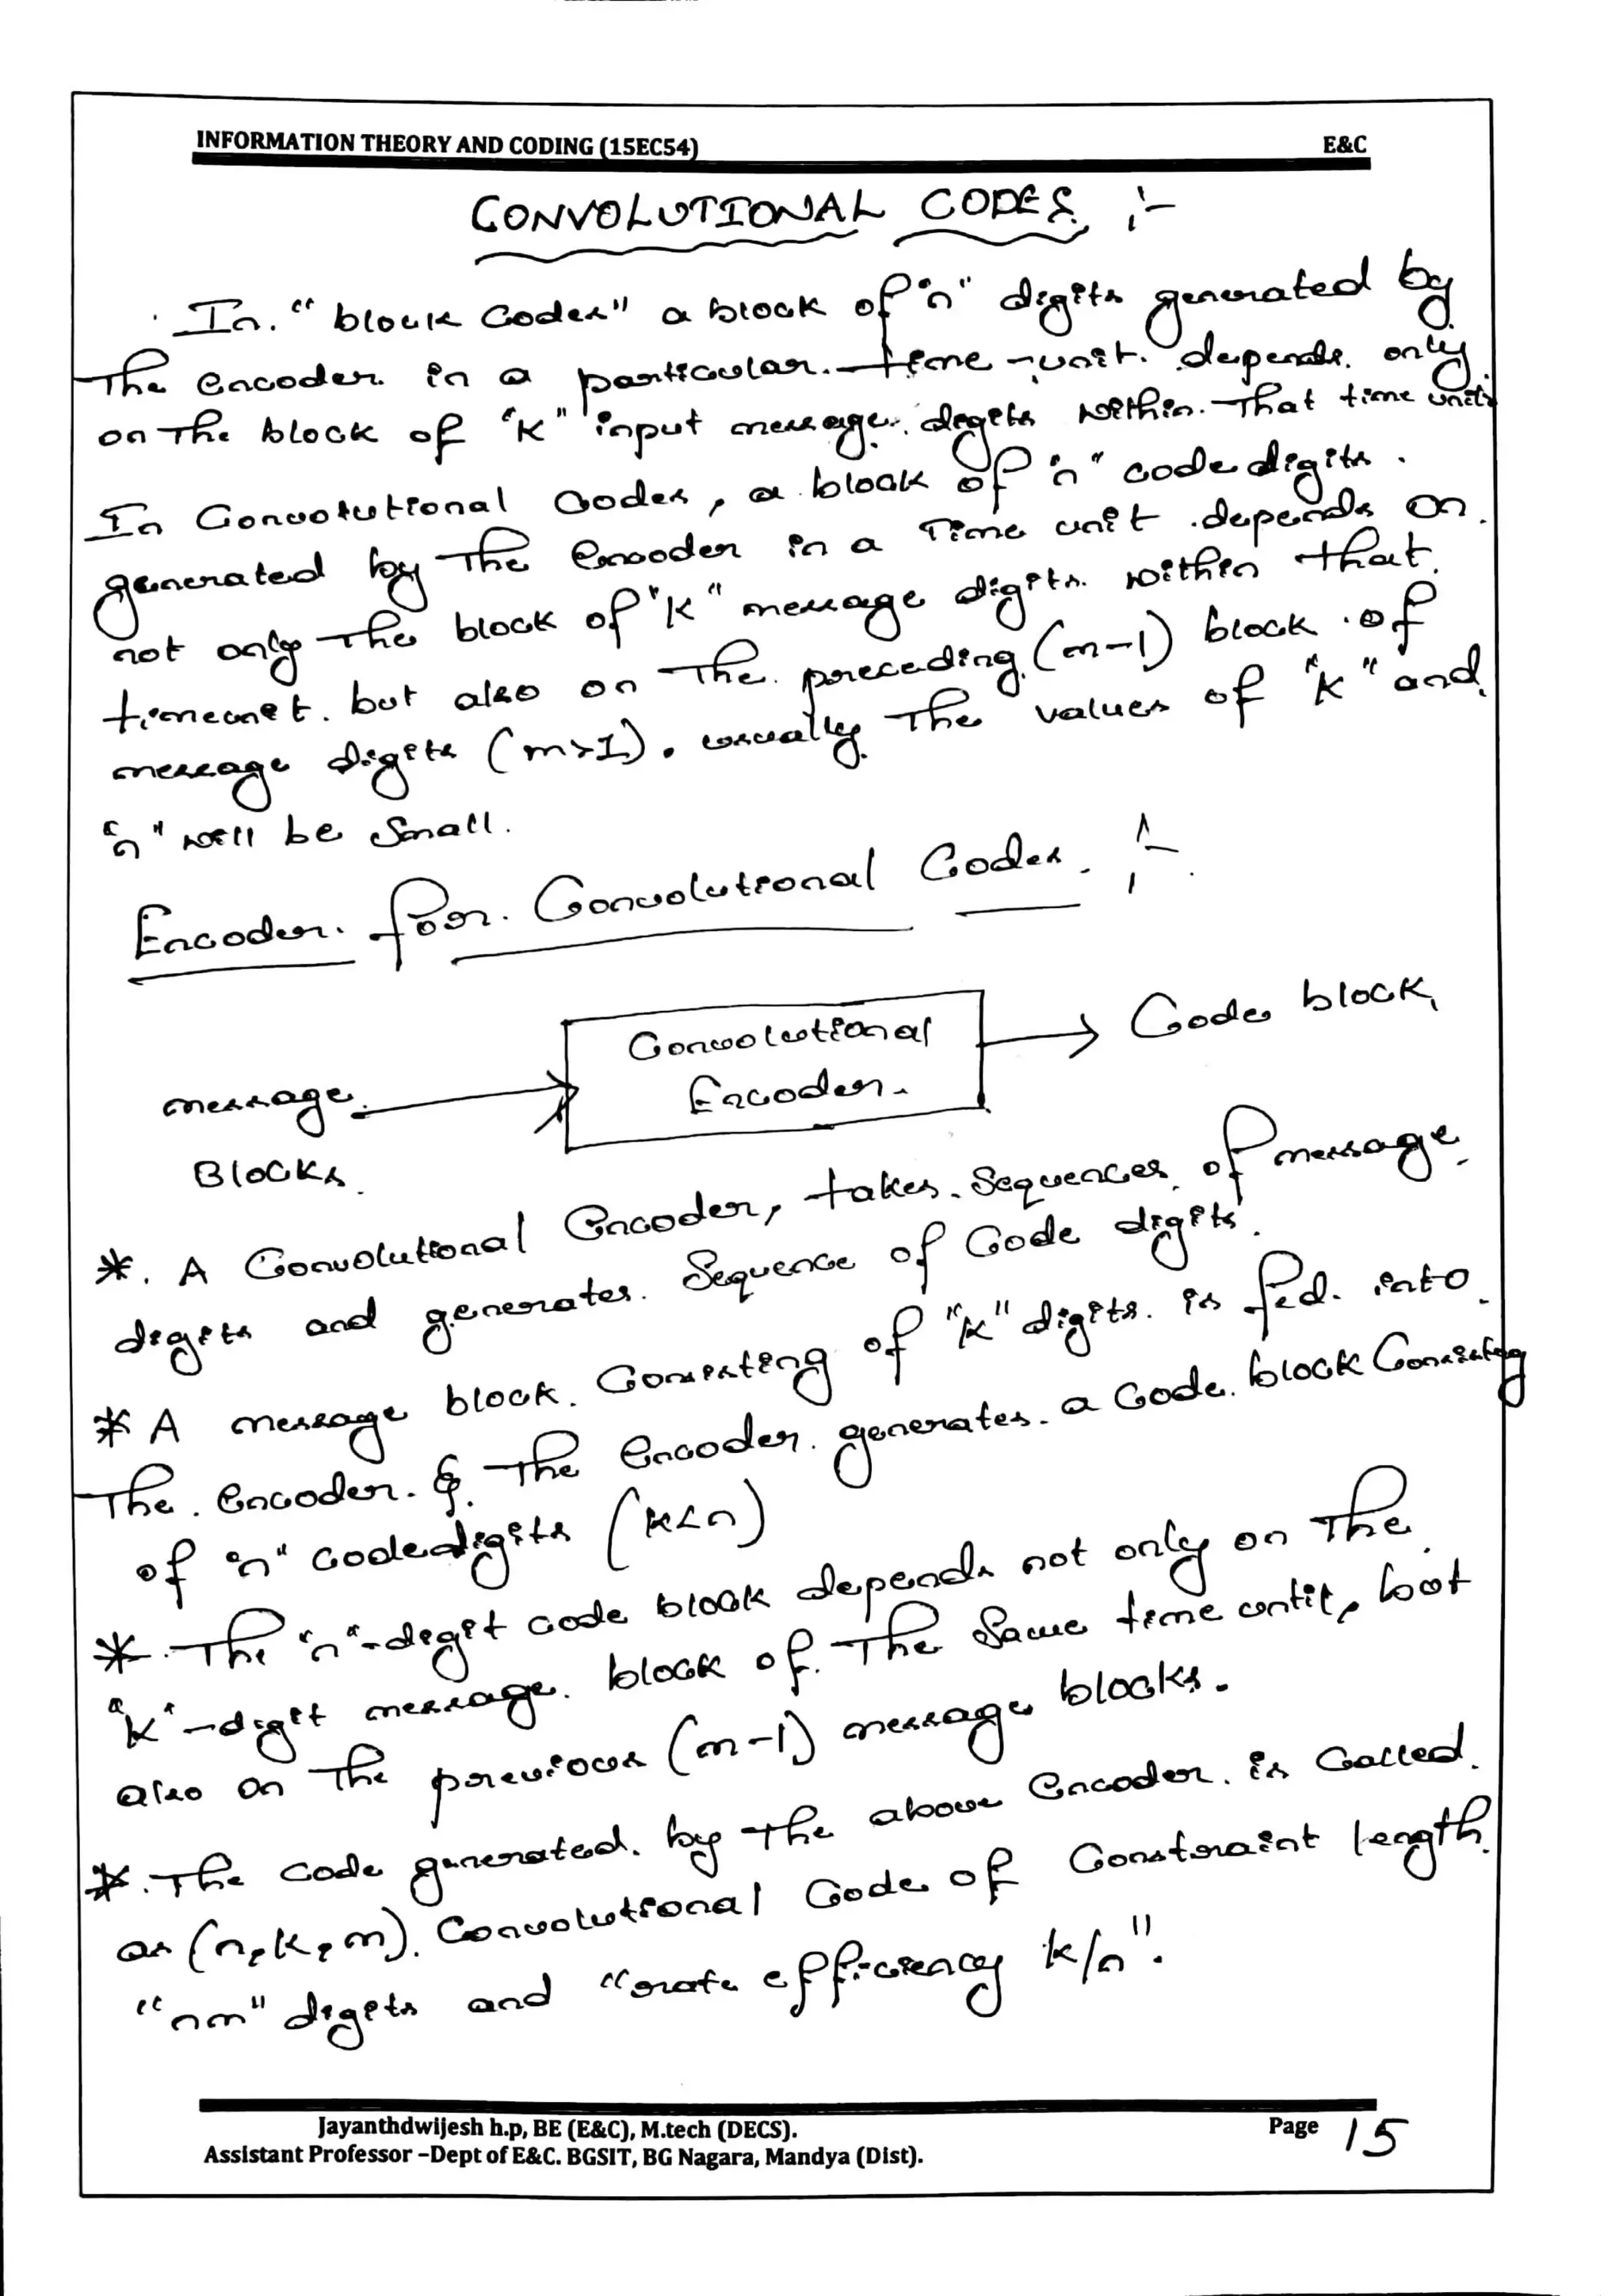 INFORMATION THEORY AND CODING (15EC54) E&C
CONVOLUTIONAL CODES :-
In "block codes" a block of "n" digits generated by
The encoder in a particular time-unit depends only
on The block of "K" input message digits within That time units
In Convolutional Codes, a block of "n" code digits
generated by The encoder in a Time unit depends on
not only The block of "K" message digits within that
timeunit. but also on The preceding (m-1) block of
message digits (m>1). usually The values of "K" and
"n" will be small.
Encoder for Convolutional Codes :-
Convolutional
Encoder
Code block
message
Blocks
* A Convolutional Encoder, takes Sequences of message
digits and generates Sequence of Code digits.
* A message block Consisting of "K" digits is fed into
The Encoder & The Encoder generates a Code block Consisting
of "n" code digits (K<n)
* The "n"-digit code block depends not only on The
"K"-digit message block of The Same time untit, but
also on The previous (m-1) message blocks.
* The code generated by the above Encoder is Called
as (n,k,m) Convolutional Code of Constraint length
"nm" digits and "rate efficiency k/n".
Jayanthdwijesh h.p, BE (E&C), M.tech (DECS). Page 15
Assistant Professor –Dept of E&C. BGSIT, BG Nagara, Mandya (Dist).